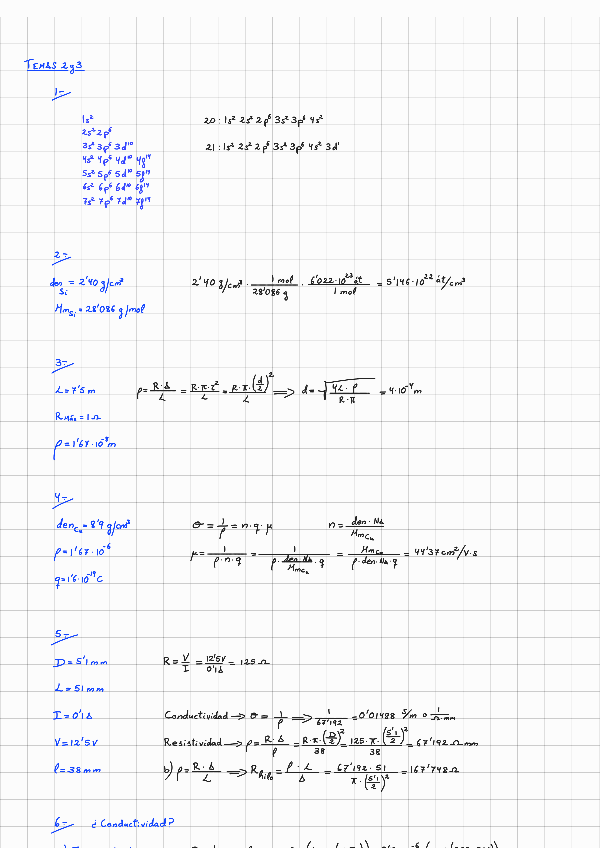 TEMAS 2 y 3
1-
1s²
2s² 2p⁶
3s² 3p⁶ 3d¹⁰
4s² 4p⁶ 4d¹⁰ 4g¹⁴
5s² 5p⁶ 5d¹⁰ 5g¹⁴
6s² 6p⁶ 6d¹⁰ 6g¹⁴
7s² 7p⁶ 7d¹⁰ 7g¹⁴
20: 1s² 2s² 2p⁶ 3s² 3p⁶ 4s²
21: 1s² 2s² 2p⁶ 3s² 3p⁶ 4s² 3d¹
2-
den_Si = 2'40 g/cm³
Mm_Si = 28'086 g/mol
2'40 g/cm³ · 1 mol / 28'086 g · 6'022·10²³ át / 1 mol = 5'146·10²² át/cm³
3-
L = 7'5 m
R_Máx = 1 Ω
ρ = 1'67·10⁻⁸ m
ρ = R·A / L = R·π·r² / L = R·π·(d/2)² / L ⟹ d = √(4L·ρ / R·π) = 4·10⁻⁴ m
4-
den_Cu = 8'9 g/cm³
ρ = 1'67·10⁻⁶
q = 1'6·10⁻¹⁹ C
σ = 1/ρ = n·q·μ n = den·NA / Mm_Cu
μ = 1 / ρ·n·q = 1 / (ρ · den·NA / Mm_Cu · q) = Mm_Cu / ρ·den·NA·q = 44'37 cm²/V·s
5-
D = 5'1 mm
L = 51 mm
I = 0'1 A
V = 12'5 V
l = 38 mm
R = V/I = 12'5V / 0'1A = 125 Ω
Conductividad → σ = 1/ρ ⟹ 1 / 67'192 = 0'01488 S/m o 1 / Ω·mm
Resistividad → ρ = R·A / ρ = R·π·(D/2)² / 38 = 125·π·(5'1/2)² / 38 = 67'192 Ω mm
b) ρ = R·A / L ⟹ R_hilo = ρ·L / A = 67'192·51 / π·(5'1/2)² = 167'748 Ω
6- ¿Conductividad?